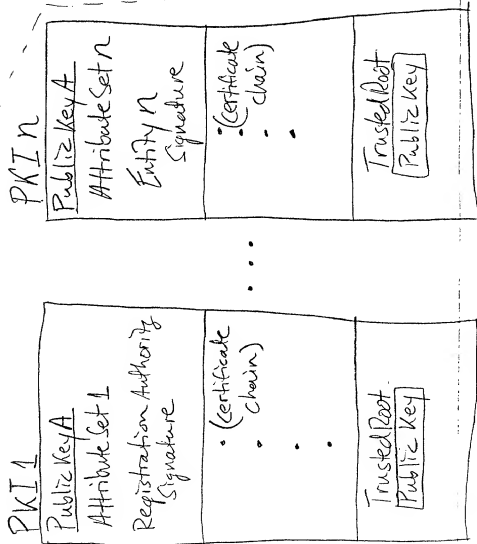 PKI1
Public Key A
Attribute Set 1
Registration Authority
Signature
(certificate
chain)
Trusted Root
Public Key
...
PKIn
Public Key A
Attribute Set n
Entity n
Signature
(certificate
chain)
Trusted Root
Public Key